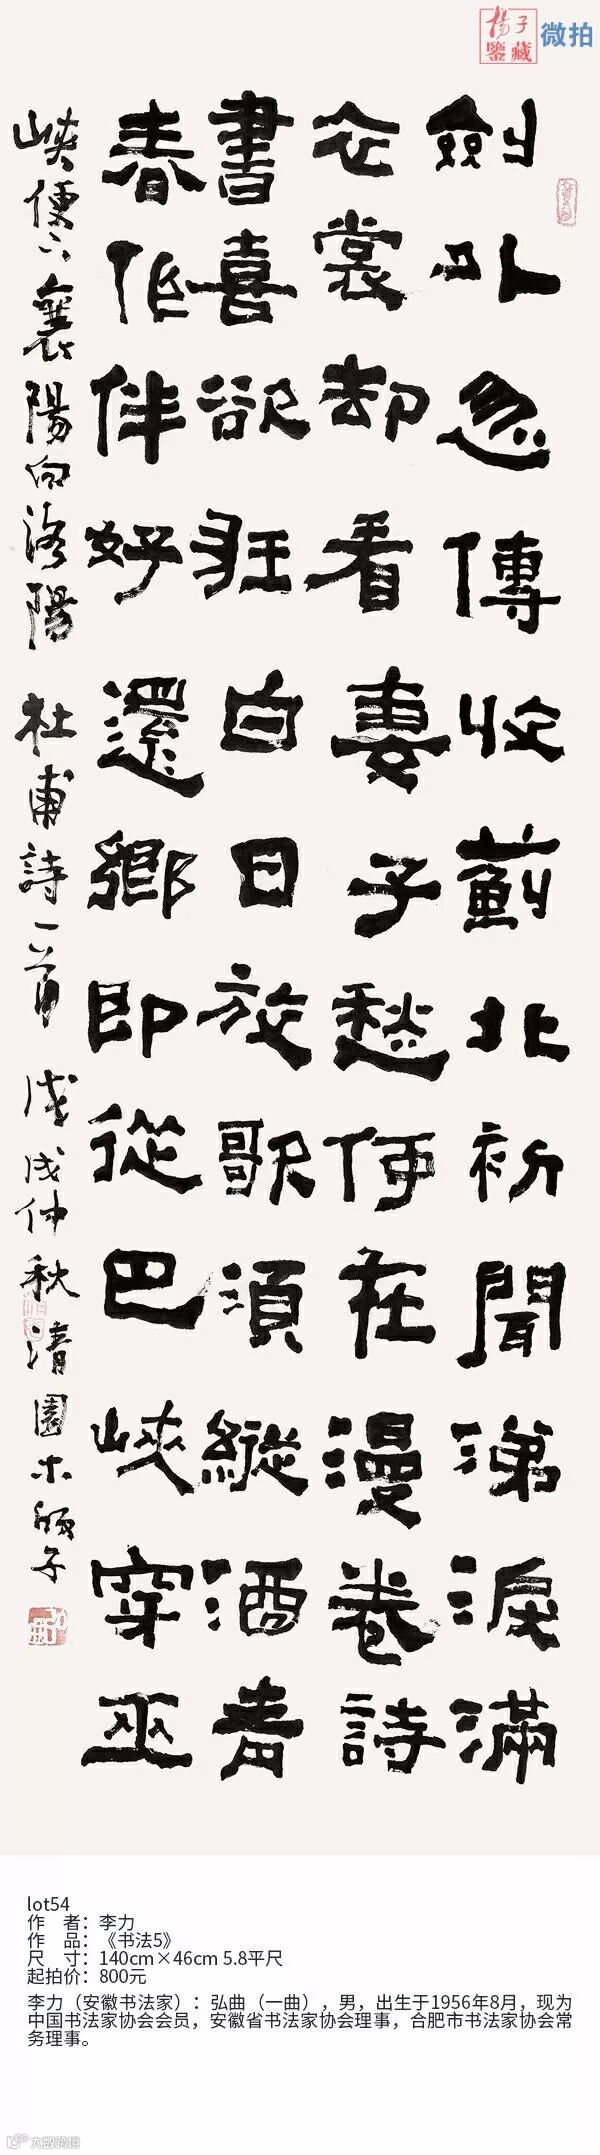 揚子鑒藏 微拍
劍外忽傳收薊北初聞涕淚滿
衣裳却看妻子愁何在漫卷詩
書喜欲狂白日放歌須縱酒青
春作伴好還鄉即從巴峽穿巫
峽便下襄陽向洛陽 杜甫詩一首 戊戌仲秋清園木子
lot54
作 者：李力
作 品：《书法5》
尺 寸：140cm×46cm 5.8平尺
起拍价：800元
李力（安徽书法家）：弘曲（一曲），男，出生于1956年8月，现为
中国书法家协会会员，安徽省书法家协会理事，合肥市书法家协会常
务理事。
大数跨境